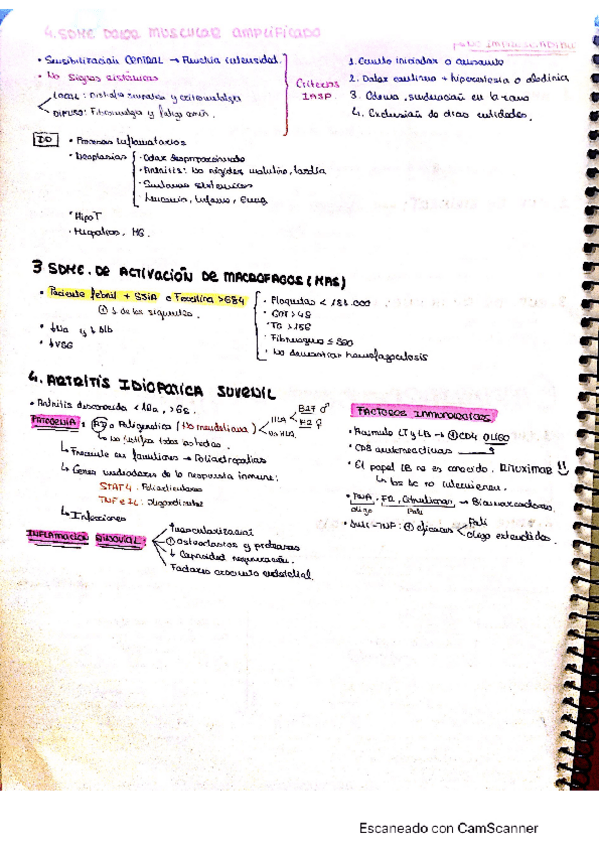 4. SDME DOLOR MUSCULAR AMPLIFICADO
• Sensibilización CENTRAL → Mucha intensidad.
• No signos sistémicos
LOCAL: Distrofia simpática y eritromelalgia
DIFUSO: Fibromialgia y fatiga
Criterios IASP.
1. Cuadro iniciador o
2. Dolor continuo + hiperestesia o alodinia
3. Edema, sudoración en la zona
4. Exclusión de otras entidades.
DD • Procesos inflamatorios
• Neoplasias
· Dolor desproporcionado
· Artritis: No rigidez matutina, tardía
· Síntomas sistémicos
Leucemia, linfoma, Ewing
• HipoT
• MG.
3 SDME. DE ACTIVACIÓN DE MACROFAGOS (MAS)
• Paciente febril + SSIA e Ferritina >684
① de los siguientes.
• ↓Na y ↓ Alb
• ↓VSG
• Plaquetas < 181.000
• GOT >48
• TG >156
• Fibrinogeno ≤ 360
• No demostrar hemofagocitosis
4. ARTRITIS IDIOPATICA JUVENIL
• Artritis desconocida <16a, >6s.
PATOGENIA: Poligenética (No mendeliana)
HLA
B27 ♂
No HLA.
↳ No justifica todas
↳ Frecuente en familiares → Poliartropatias
↳ Genes mediadores de la respuesta inmune:
STAT4: Poliarticulares
TNF e IL: Oligoarticular
↳ Infecciones
INFLAMACION SINOVIAL:
↑vascularización
Osteoclastos y proteasas
↓ Capacidad regeneración.
Factores crecimiento endotelial.
FACTORES INMUNOLOGICOS
• Acúmulo LT y LB → CD4 OLIGO
• CD8 autorreactivos
• El papel LB no es conocido. Rituximab !!
↳ los LB no intervienen.
• ANA, FR, Citrulinas → Biomarcadores.
oligo Poli
• Anti-TNF: eficaces
Poli
oligo extendidos.
Escaneado con CamScanner